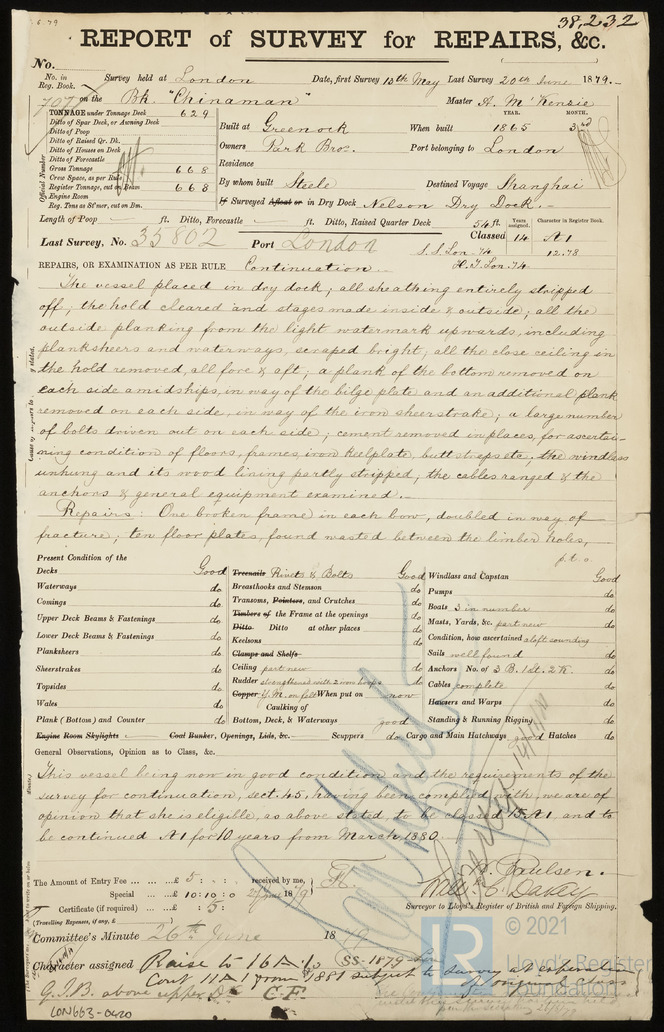 6 79
38,232
REPORT of SURVEY for REPAIRS, &c.
No.
No. in Reg. Book. Survey held at London Date, first Survey 13th May Last Survey 20th June 1879.
707 on the Bk. "Chinaman" Master A. McKenzie
TONNAGE under Tonnage Deck 629
Ditto of Spar Deck, or Awning Deck
Ditto of Poop
Ditto of Raised Qr. Dk.
Ditto of Houses on Deck
Ditto of Forecastle
Gross Tonnage 668
Crew Space, as per Rule
Register Tonnage, cut on Beam 668
Engine Room
Reg. Tons as St'mer, cut on Bm.
Official Number
YEAR. MONTH.
Built at Greenock When built 1865 3
Owners Park Bros. Port belonging to London
Residence
By whom built Steele Destined Voyage Shanghai
If Surveyed Afloat or in Dry Dock Nelson Dry Dock.
Length of Poop ft. Ditto, Forecastle ft. Ditto, Raised Quarter Deck 54 ft.
Years assigned. Character in Register Book.
Last Survey, No. 35802 Port London Classed 14 A1
S.S. Lon. 74 12.78
H.T. Lon. 74
REPAIRS, OR EXAMINATION AS PER RULE Continuation
The vessel placed in dry dock; all sheathing entirely stripped
off; the hold cleared and stages made inside & outside; all the
outside planking from the light watermark upwards, including
planksheers and waterways, scraped bright; all the close ceiling in
the hold removed, all fore & aft; a plank of the bottom removed on
each side amidships, in way of the bilge plate and an additional plank
removed on each side, in way of the iron sheerstrake; a large number
of bolts driven out on each side; cement removed in places, for ascertai-
ning condition of floors, frames, iron keelplate, buttstraps etc; the windlass
unhung and its wood lining partly stripped; the cables ranged & the
anchors & general equipment examined.
Repairs: One broken frame in each bow, doubled in way of
fracture; ten floor plates, found wasted between the limber holes,
p.t.o.
Present Condition of the
Decks Good
Waterways do
Comings do
Upper Deck Beams & Fastenings do
Lower Deck Beams & Fastenings do
Planksheers do
Sheerstrakes do
Topsides do
Wales do
Plank (Bottom) and Counter do
Engine Room Skylights
Treenails Rivets & Bolts Good
Breasthooks and Stemson do
Transoms, Pointers, and Crutches do
Timbers of the Frame at the openings do
Ditto Ditto at other places do
Keelsons do
Clamps and Shelfs
Ceiling part new do
Rudder strengthened with 2 iron hoops do
Copper Y.M. on felt When put on now
Caulking of
Bottom, Deck, & Waterways good
Coal Bunker, Openings, Lids, &c. Scuppers do
Windlass and Capstan Good
Pumps do
Boats 3 in number do
Masts, Yards, &c. part new do
Condition, how ascertained aloft sounding
Sails well found do
Anchors No. of 3 B. 1 St. 2 K. do
Cables complete do
Hawsers and Warps do
Standing & Running Rigging do
Cargo and Main Hatchways Hatches do
General Observations, Opinion as to Class, &c.
This vessel being now in good condition and the requirements of the
survey for continuation, sect. 45, having been complied with, we are of
opinion that she is eligible, as above stated, to be classed 15 A1, and to
be continued A1 for 10 years from March 1880.
The Amount of Entry Fee ... ... £ 5 : : received by me,
Special ... ... £ 10 : 10 : 0 18 79
Certificate (if required) ... £ : 5 :
(Travelling Expenses, if any, £ )
H. Paulsen.
Surveyor to Lloyd's Register of British and Foreign Shipping.
Committee's Minute 26th June 1879
Character assigned Raise to 16 A.1. SS-1879-Lon
Cont. 11 A 1 from 1881 subject to survey at expiration of original class
G.I.B. above upper Dk C.F.
LON663-0420
© 2021
LR
Lloyd's Register
Foundation